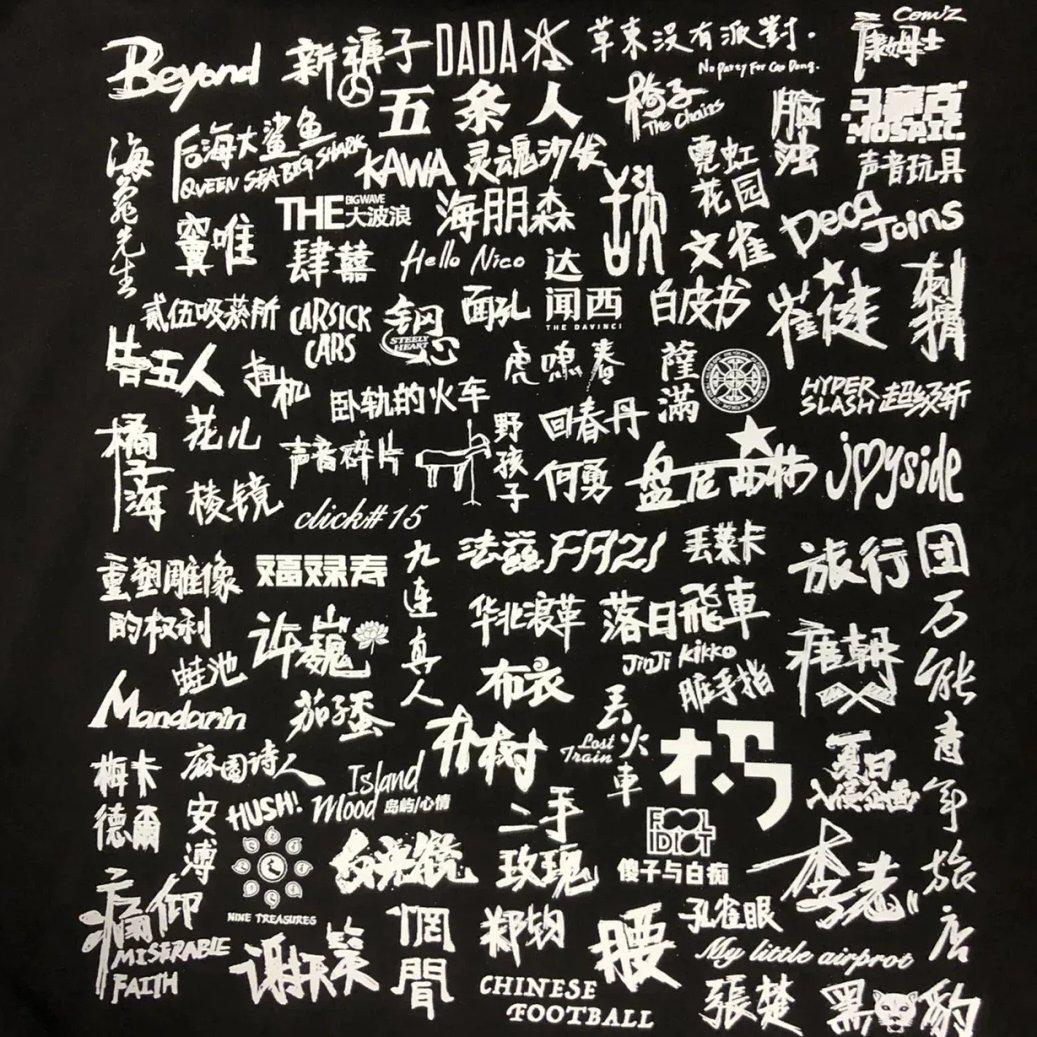 Beyond
新裤子
DADA
草東没有派對.
No Party For Cao Dong.
Com'Z
康姆士
五条人
椅子
The Chairs
脑浊
马赛克
MOSAIC
海龟先生
后海大鲨鱼
QUEEN SEA BIG SHARK
KAWA
灵魂沙发
霓虹花园
声音玩具
窦唯
THE BIGWAVE 大波浪
海朋森
文雀
Deca Joins
肆囍
Hello Nico
达闻西
THE DAVINCI
白皮书
崔健
刺猬
贰伍吸蒸所
CARSICK CARS
钢心
STEELY HEART
面孔
告五人
扭机
卧轨的火车
虎啸春
薩滿
HYPER SLASH 超级斩
橘子海
花儿
声音碎片
野孩子
回春丹
何勇
盘尼西林
joyside
棱镜
click#15
重塑雕像的权利
福禄寿
九连真人
法兹FAZI
丢莱卡
旅行团
华北浪革
落日飛車
JinJi Kikko
万能青年旅店
许巍
布衣
脏手指
唐朝
蛙池
Mandarin
茄子蛋
朴树
丢火車
Lost Train
木马
夏日入侵企画
梅卡德爾
麻园诗人
Island Mood 岛屿/心情
安溥
HUSH!
二手玫瑰
FOOL IDIOT
傻子与白痴
NINE TREASURES
反光镜
李志
痛仰
MISERABLE FAITH
谢天笑
惘聞
郑钧
腰
孔雀眼
My little airprot
CHINESE FOOTBALL
張楚
黑豹